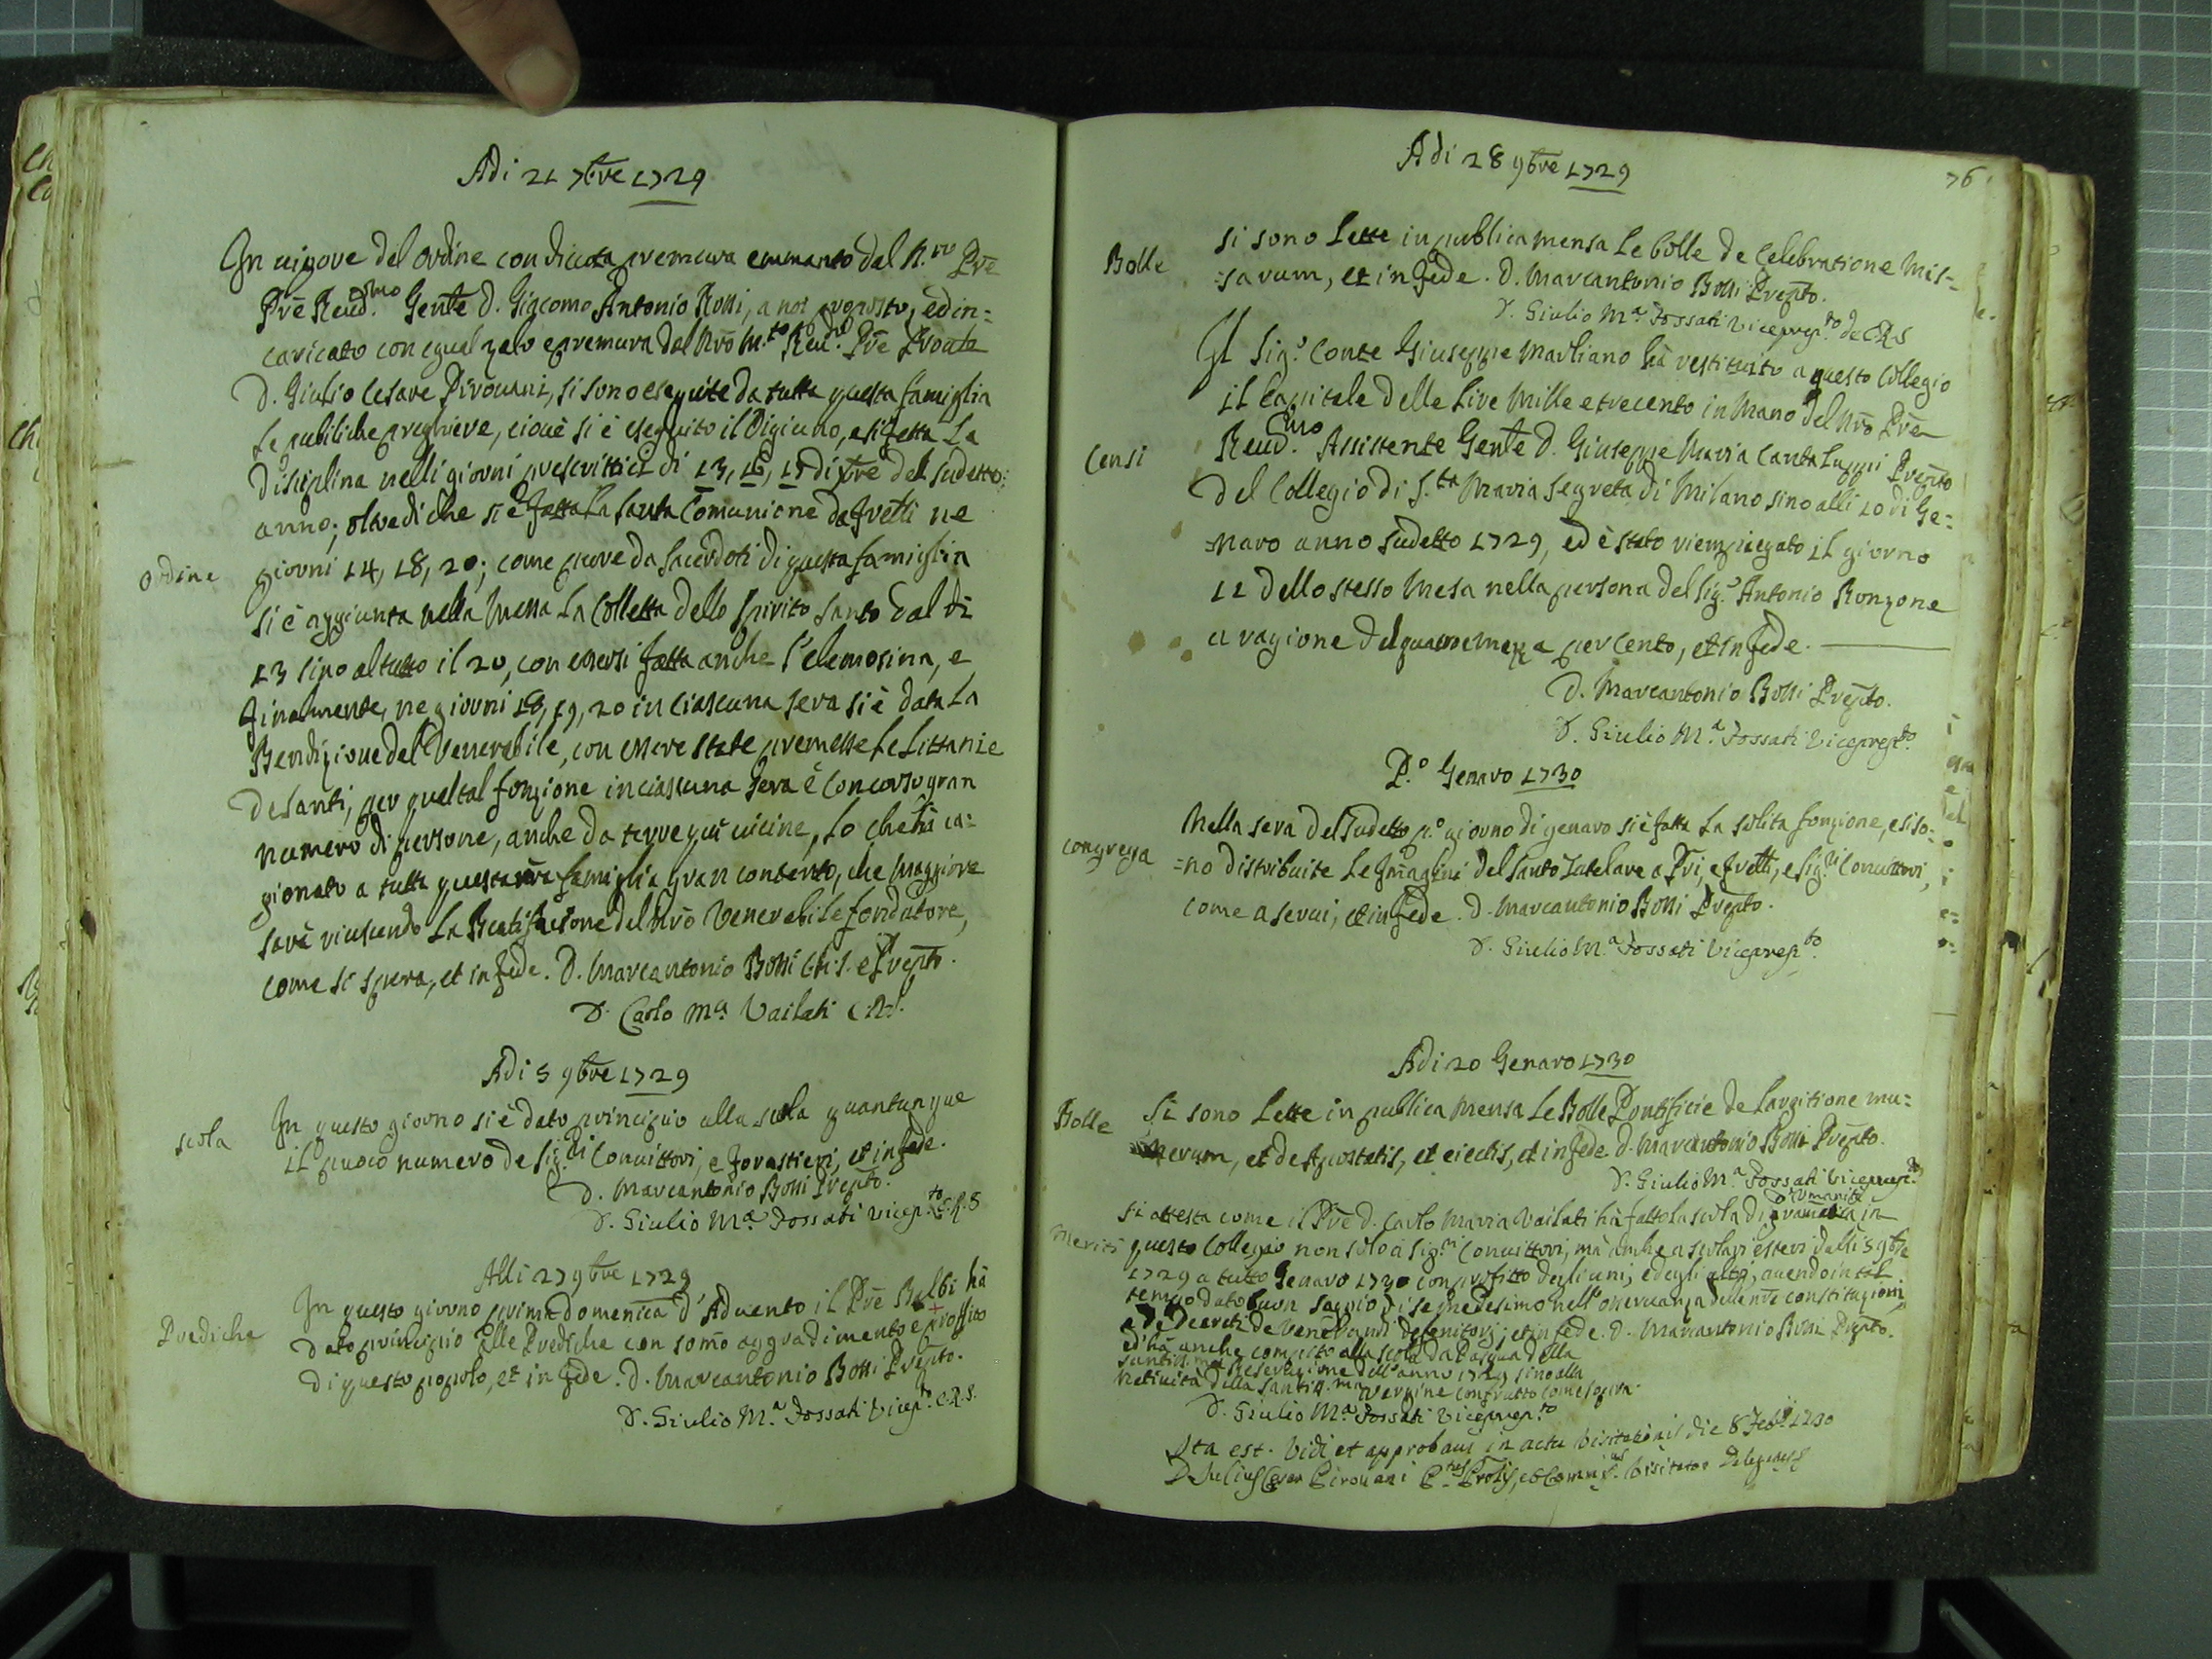 Adi 21 7bre 1729
In vigore del ordine con dicota premura emmanto dal N.ro Pre
Pre Reud.smo Genle D. Giacomo Antonio Rossi, a noi proposto, ed in=
caricato con egual zelo e premura dal Nro M.to Reu.do Pre Proule
D. Giulio Cesare Pirouani, si sono eseguite da tutta questa famiglia
le publiche preghiere, ciouè si è eseguito il Digiuno, e si fatta La
Disciplina nelli giorni prescritti di 13, 16, 17 di 7bre del sudetto
anno; oltre di che si è fatta La santa Comunione da fretti ne
Ordine
giorni 14, 18, 20; come pure da sacerdoti di questa famiglia
si è aggiunta nella Messa La Colletta dello Spirito Santo dal di
13 sino al tutto il 20, con essersi fatta anche l'elemosina, e
finalmente, ne giorni 18, 19, 20 in ciascuna sera si è data La
Bendizione del Venerabile, con essere state premesse le Littanie
de santi, per qual tal fonzione in ciascuna sera è concorso gran
numero di persone, anche da terre più uicine, lo che hà ca=
gionato a tutta questa nra famiglia gran contento, che maggiore
sarà riuscendo La Beatificatione del Nro Venerabile fondatore,
come si spera, et in fede. D. Marcantonio Bossi C.R.S. e Prepto.
D. Carlo Ma. Vailati C.R.S.
Adi 5 9bre 1729
scola
In questo giorno si è dato principio alla scola quantunque
il puoco numero de Sig.ri Conuittori, e forastieri, et in fede.
D. Marcantonio Bossi Prepto.
D. Giulio M.a Fossati vicep.to C.R.S
Alli 27 9bre 1729
Prediche
In questo giorno prima domenica d'Aduento il Pre Balbi hà
dato principio alle Prediche con somo aggradimento e profitto
di questo popolo, et in fede. D. Marcantonio Bossi Prepto.
D. Giulio M.a Fossati Vicep.to C.R.S.
Adi 28 9bre 1729
76
Bolle
Si sono Lette in publica mensa Le bolle de Celebratione Mis=
=sarum, et in fede. D. Marcantonio Bossi Prepto.
D. Giulio M.a Fossati Viceprep.to de CRS
Il Sig.r Conte Giuseppe Marliano hà restituito a questo Collegio
il Capitale delle Lire Mille e trecento in Mano del Nro Pre
Censi
Reud.mo Assistente Genle D. Giuseppe Maria Cantaluppi Prepto
del Collegio di S.ta Maria Segreta di Milano sino alli 10 di Ge=
=naro anno sudetto 1729, ed è stato riempiegato il giorno
11 dello stesso Mese nella persona del Sig.r Antonio Ronzone
a ragione del quatro e mezza per cento, et in fede.
D. Marcantonio Bossi Prepto.
D. Giulio M.a Fossati Viceprep.to
P.o Genaro 1730
congrega
Nella sera del sudetto p.o giorno di genaro si è fatta La solita fonzione, e si so=
=no distribuite Le Imagini del Santo Tutelare a Pri, e fretti, e Sig.ri Conuittori,
come a serui, et in fede. D. Marcantonio Bossi Prepto.
D. Giulio M.a Fossati Viceprep.to
Adi 20 Genaro 1730
Bolle
Si sono Lette in publica Mensa Le Bolle Pontificie de Largitione mu=
nerum, et de Apostatis, et eiectis, et in fede. D. Marcantonio Bossi Prepto.
D. Giulio M.a Fossati Viceprep.to
d'Umanità
Si attesta come il Pre D. Carlo Maria Vailati hà fatto la scola di gramatica in
meriti
questo Collegio non solo a Sig.ri Conuittori, mà anche a scolari esteri dalli 5 9bre
1729 a tutto Genaro 1730 con profitto degli uni, e degli altri, auendo in tal
tempo dato buon saggio di se medesimo nell'osseruanza delle nre constitutioni
e de Decreti de Venerandi Defenitorj; et in fede. D. Marcantonio Bossi Prepto.
ed hà anche compito alla scola da Pasqua della
santiss.ma Resurezione dell'anno 1729 sino alla
Natiuità della Santiss.ma Vergine con frutto come sopra.
D. Giulio M.a Fossati Viceprep.to
Ita est. Vidi et approbaui in actu Visitationis die 8 Feb. 1730
D. Julius Cesar Pirouani Prolis, et Visitator Delegatus